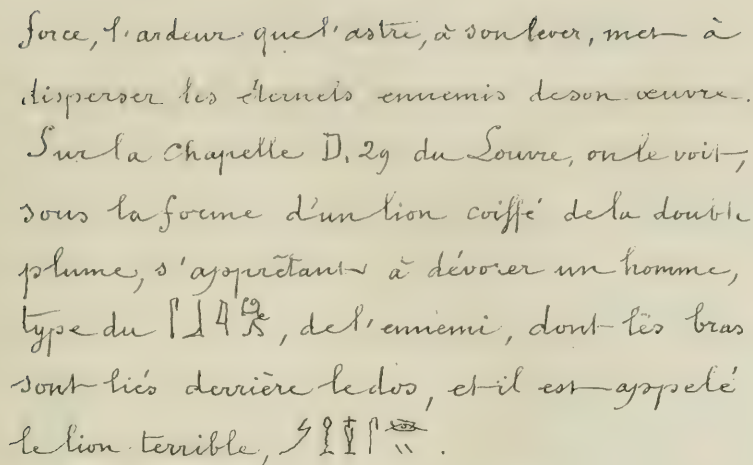 force, l'ardeur que l'astre, à son lever, met à
disperser les éternels ennemis de son œuvre.
Sur la chapelle D. 29 du Louvre, on le voit,
sous la forme d'un lion coiffé de la double
plume, s'apprêtant à dévorer un homme,
type du , de l'ennemi, dont les bras
sont liés derrière le dos, et il est appelé
le lion terrible, .